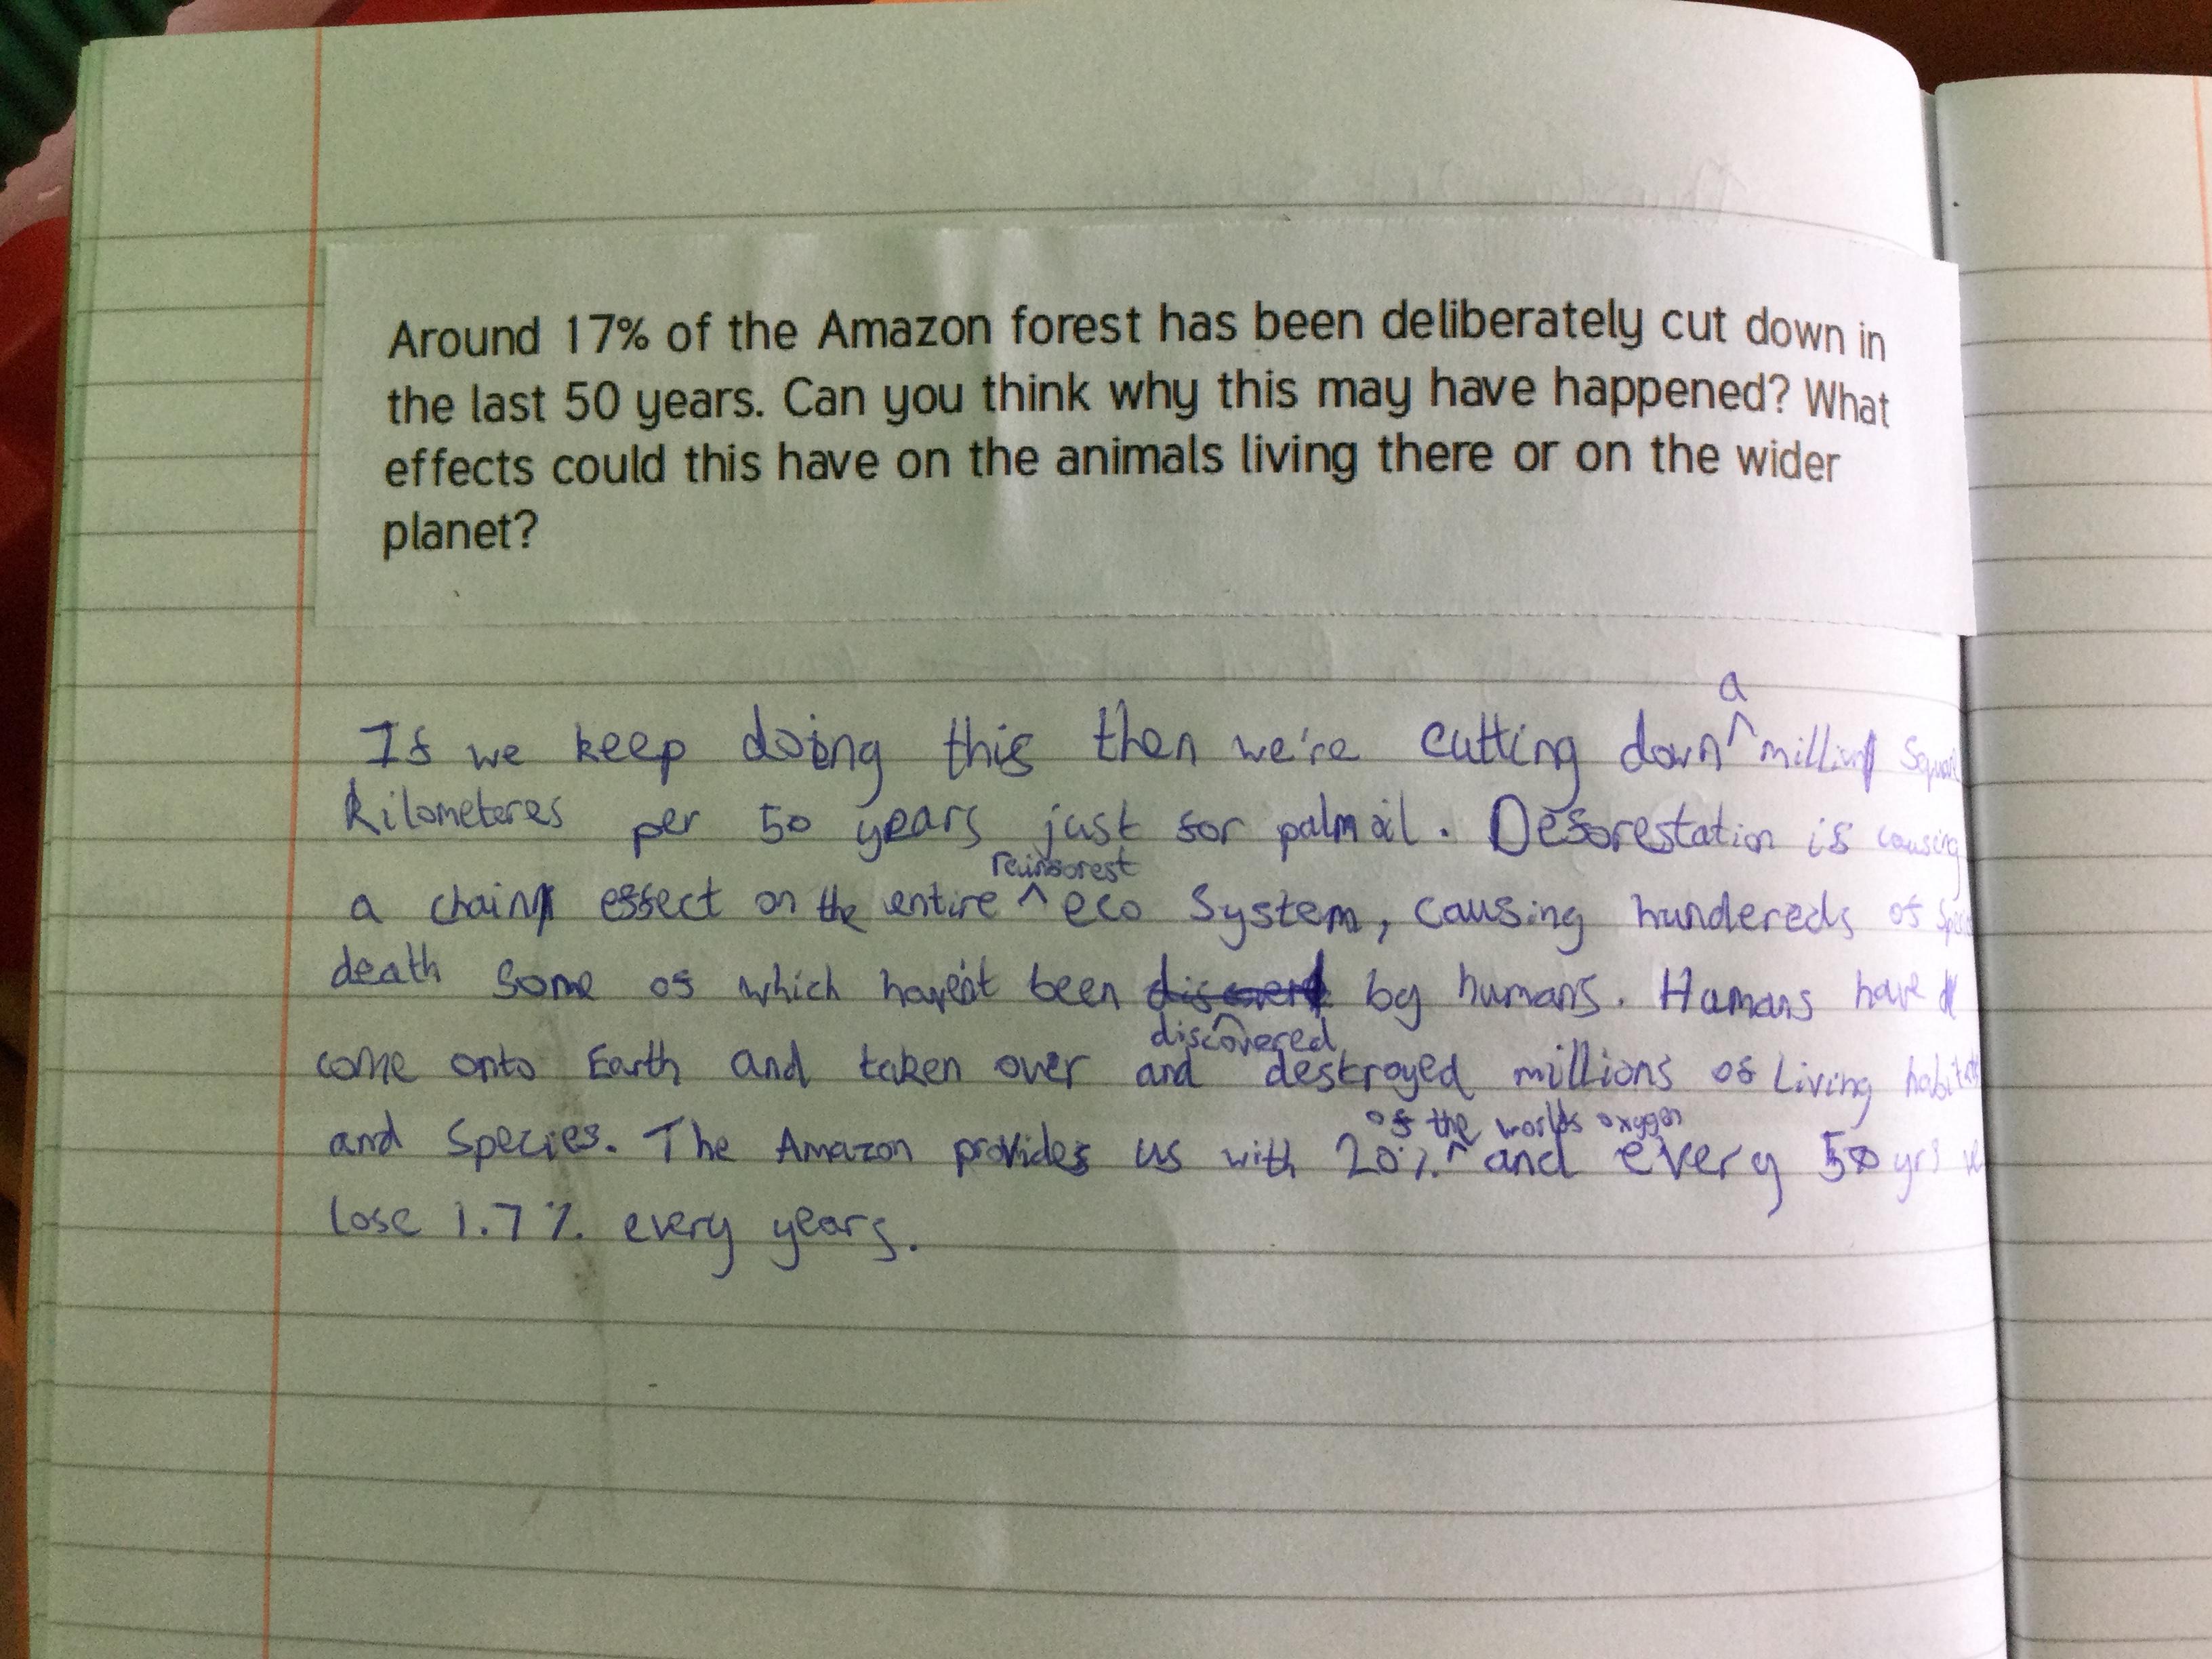 Around 17% of the Amazon forest has been deliberately cut down in
the last 50 years. Can you think why this may have happened? What
effects could this have on the animals living there or on the wider
planet?
a
If we keep doing this then we're cutting down ^ million Square
kilometeres per 50 years just for palm oil. Deforestation is causing
rainforest
a chain effect on the entire ^ eco System, causing hundereds of
death Some of which haven't been by humans. Humans have
discovered
come onto Earth and taken over and destroyed millions of Living habitats
of the worlds oxygen
and Species. The Amazon provides us with 20% ^ and every 50 yrs we
lose 1.7% every years.